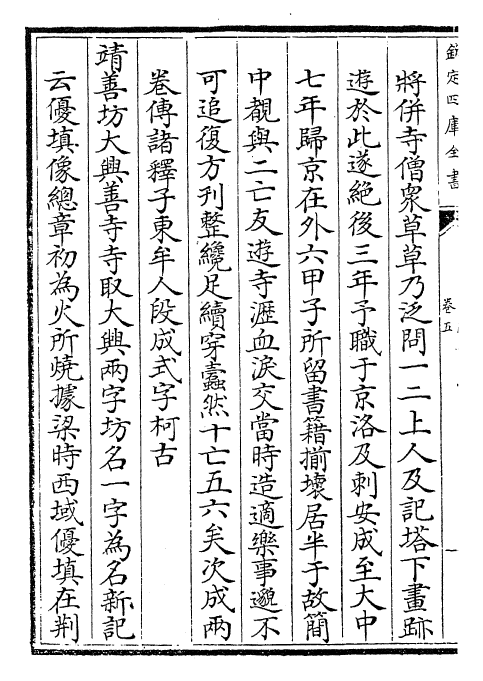 欽定四庫全書
卷五
一
將併寺僧衆草草乃泛問一二上人及記塔下畫跡
遊於此遂絶後三年予職于京洛及刺安成至大中
七年歸京在外六甲子所留書籍揃壞居半于故簡
中覩與二亡友遊寺瀝血淚交當時造適樂事邈不
可追復方刊整纔足續穿蠹然十亡五六矣次成兩
卷傳諸釋子東牟人段成式字柯古
靖善坊大興善寺寺取大興兩字坊名一字為名新記
云優填像總章初為火所燒據梁時西域優填在荆